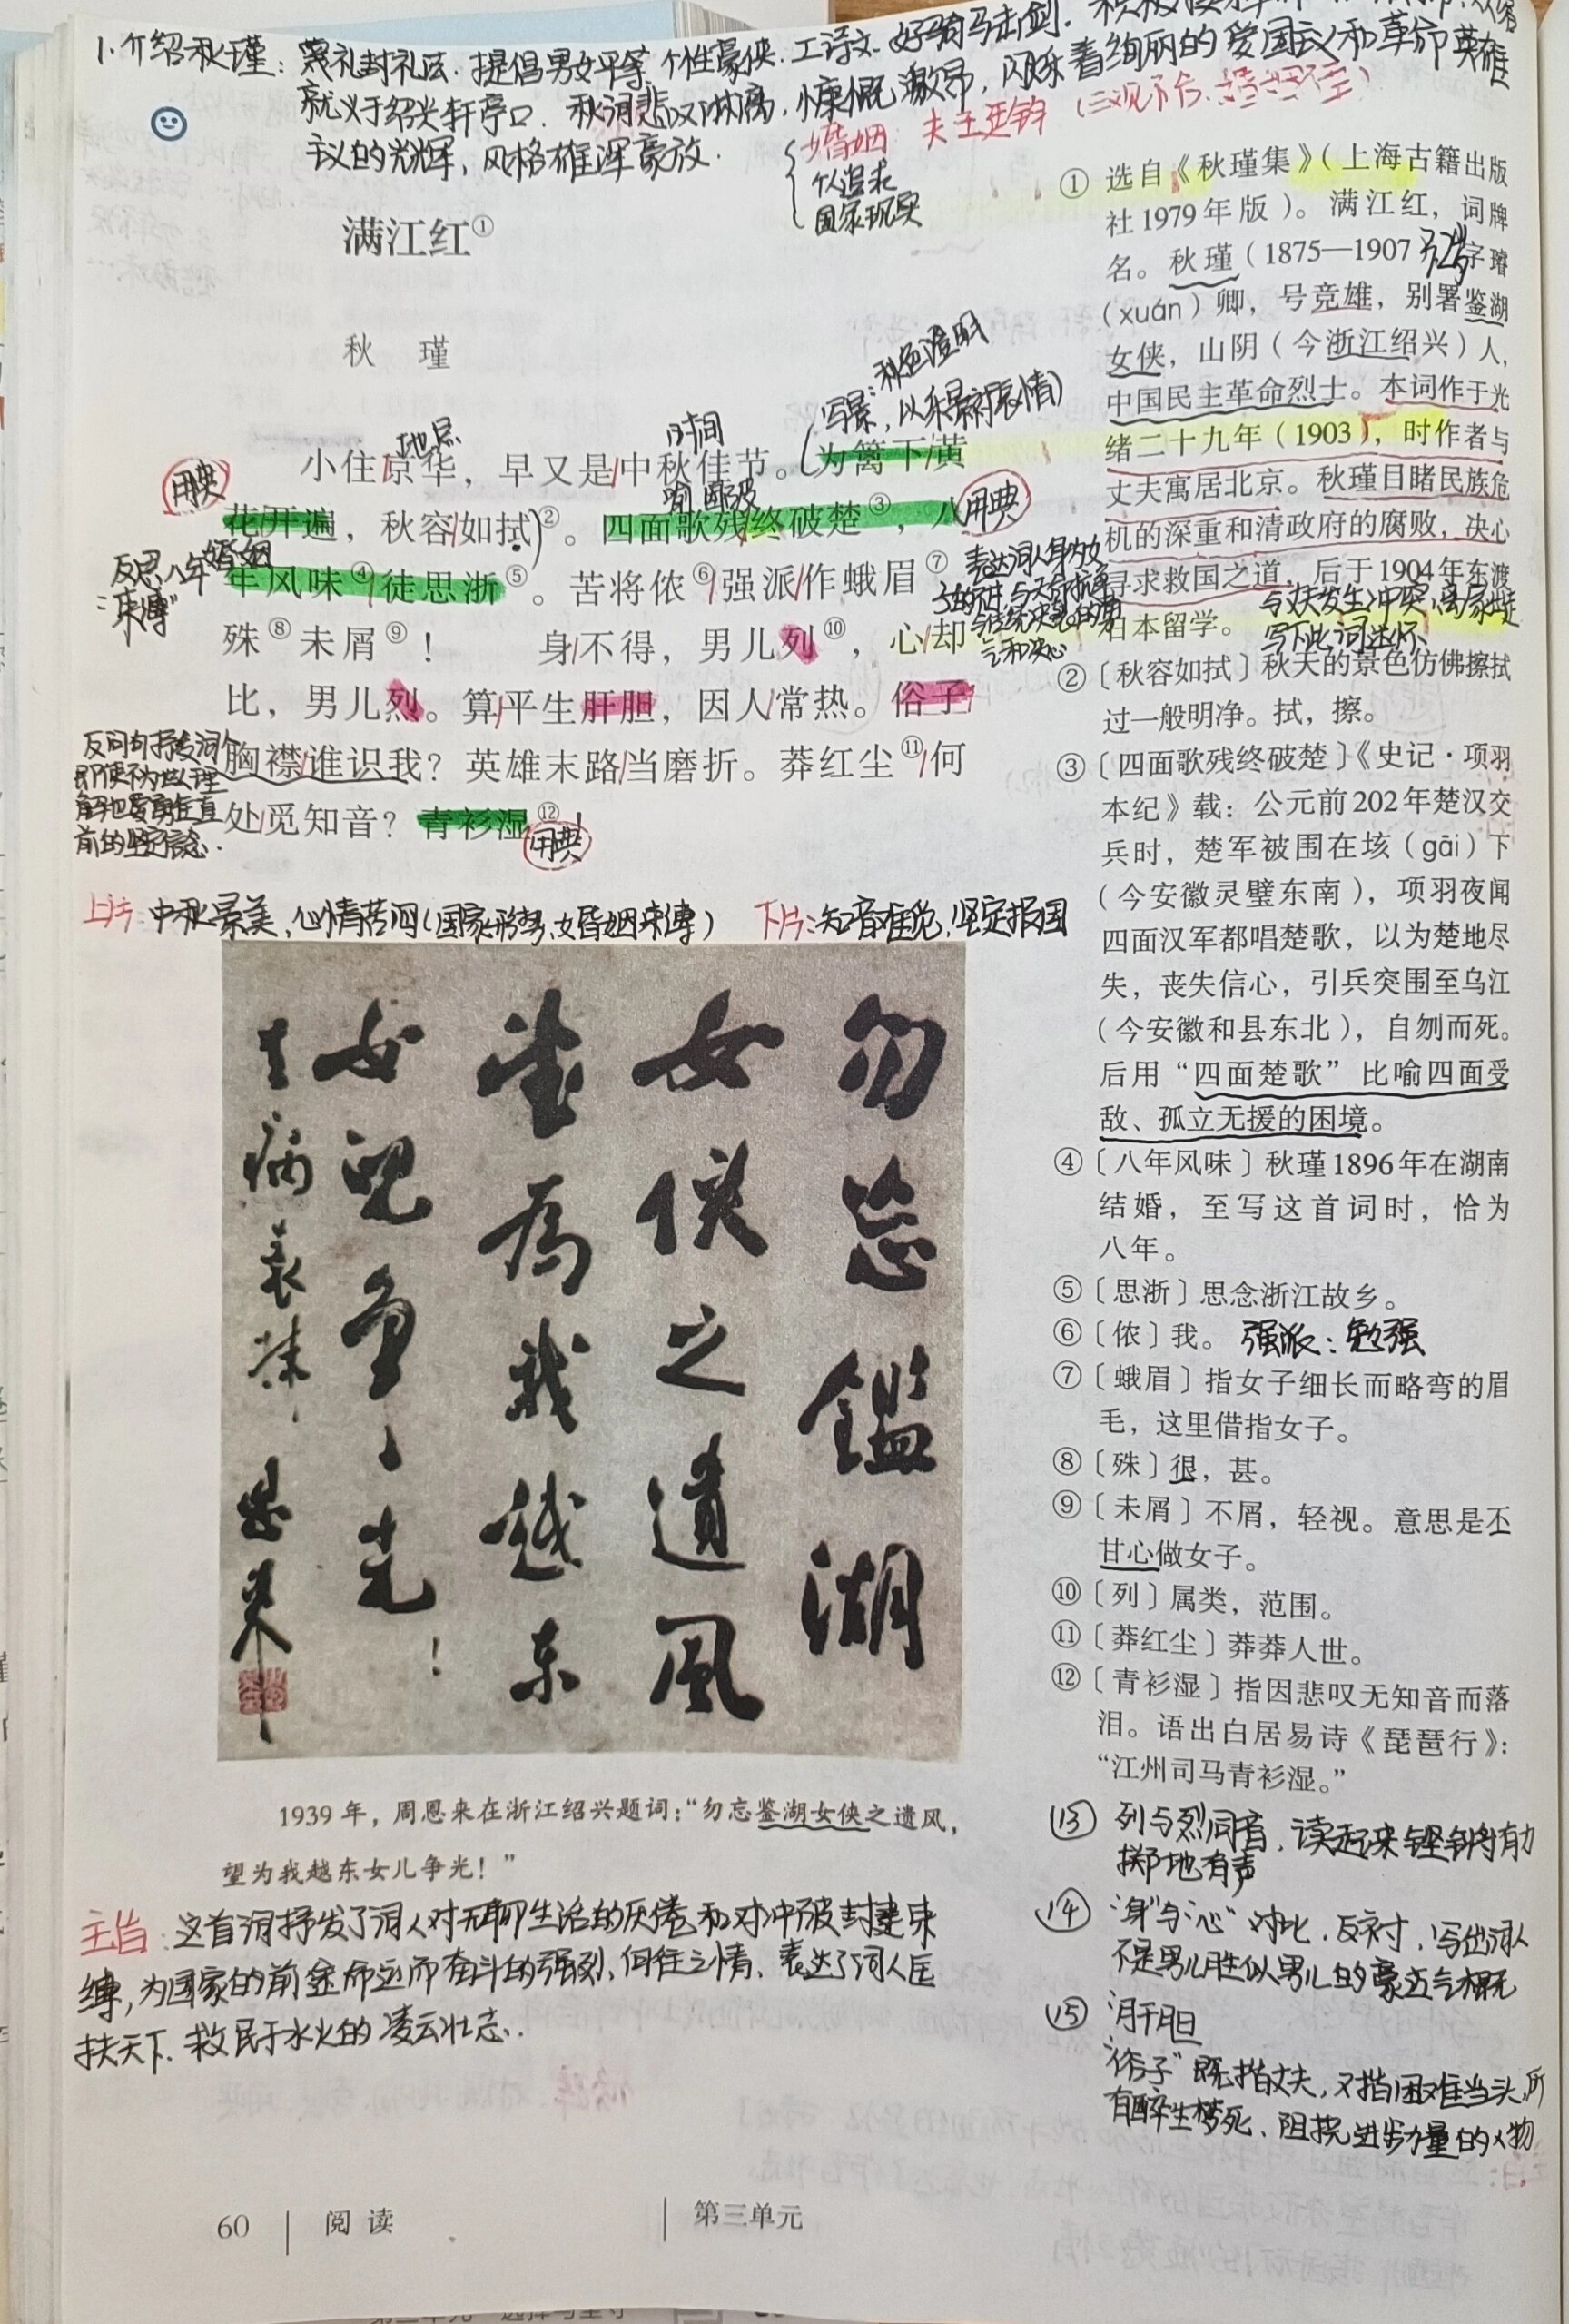 1.介绍秋瑾：蔑礼封礼法．提倡男女平等．个性豪侠．工诗文．好骑马击剑．
就义于绍兴轩亭口．秋词悲叹淋漓，慷慨激昂，闪烁着绚丽的爱国主义和革命英雄
主义的光辉，风格雄浑豪放．
婚姻：夫王廷钧（三观不合、
个人追求
国家现实
满江红①
秋 瑾
写景：秋色澄明
以乐景衬哀情）
地点
时间
小住京华，早又是中秋佳节。为篱下黄
用典
喻
用典
花开遍，秋容如拭②。四面歌残终破楚③，八
反思八年婚姻
“束缚”
年风味④徒思浙⑤。苦将侬⑥强派作蛾眉⑦
表达词人身为女
殊⑧未屑⑨！ 身不得，男儿列⑩，心却
比，男儿烈。算平生肝胆，因人常热。俗子
反问句抒发词人
即便不为世人理
解也要勇往直
前的坚定信念．
胸襟谁识我？英雄末路当磨折。莽红尘⑪何
处觅知音？青衫湿⑫！
用典
上片：中秋景美，心情苦闷（国家形势，婚姻束缚）
下片：知音难觅，坚定报国
勿忘鑑湖
女侠之遺風
望為我越東
女兒爭光！
恩来
1939年，周恩来在浙江绍兴题词：“勿忘鉴湖女侠之遗风，
望为我越东女儿争光！”
主旨：这首词抒发了词人对无聊生活的厌倦和对冲破封建束
缚，为国家的前途命运而奋斗的强烈、向往之情、表达了词人匡
扶天下．救民于水火的凌云壮志．
① 选自《秋瑾集》（上海古籍出版
社1979年版）。满江红，词牌
名。秋瑾（1875—1907 字璿
（xuán）卿，号竞雄，别署鉴湖
女侠，山阴（今浙江绍兴）人，
中国民主革命烈士。本词作于光
绪二十九年（1903），时作者与
丈夫寓居北京。秋瑾目睹民族危
机的深重和清政府的腐败，决心
寻求救国之道，后于1904年东渡
日本留学。
与丈夫发生冲突，离家出走
写下此词述怀
②〔秋容如拭〕秋天的景色仿佛擦拭
过一般明净。拭，擦。
③〔四面歌残终破楚〕《史记·项羽
本纪》载：公元前202年楚汉交
兵时，楚军被围在垓（gāi）下
（今安徽灵璧东南），项羽夜闻
四面汉军都唱楚歌，以为楚地尽
失，丧失信心，引兵突围至乌江
（今安徽和县东北），自刎而死。
后用“四面楚歌”比喻四面受
敌、孤立无援的困境。
④〔八年风味〕秋瑾1896年在湖南
结婚，至写这首词时，恰为
八年。
⑤〔思浙〕思念浙江故乡。
⑥〔侬〕我。 强派：勉强
⑦〔蛾眉〕指女子细长而略弯的眉
毛，这里借指女子。
⑧〔殊〕很，甚。
⑨〔未屑〕不屑，轻视。意思是不
甘心做女子。
⑩〔列〕属类，范围。
⑪〔莽红尘〕莽莽人世。
⑫〔青衫湿〕指因悲叹无知音而落
泪。语出白居易诗《琵琶行》：
“江州司马青衫湿。”
⑬ 列与烈同音，读起来铿锵有力
掷地有声
⑭ “身”与“心”对比，反衬，写出词人
不是男儿胜似男儿的豪迈气概
⑮ 肝胆
“俗子”既指丈夫，又指困难当头，所
有醉生梦死、阻挠进步力量的人物
60 阅读
第三单元